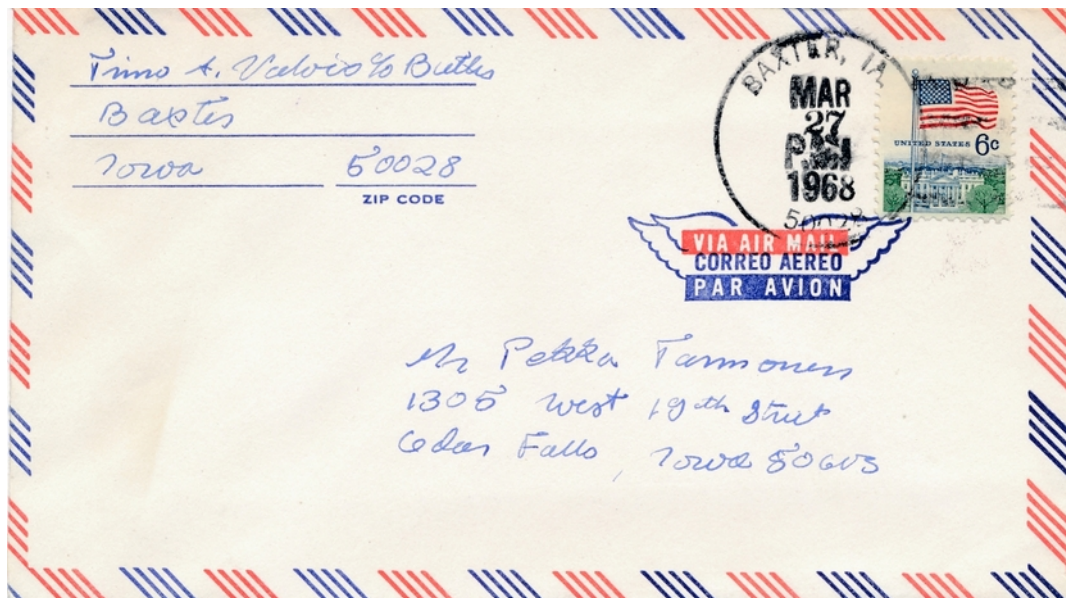 Timo A. Valvio c/o Butler
Baxter
Iowa 50028
ZIP CODE
BAXTER, IA
MAR
27
PM
1968
50028
UNITED STATES 6c
VIA AIR MAIL
CORREO AEREO
PAR AVION
Mr Pekka Tammonen
1305 West 19th Street
Cedar Falls, Iowa 50613